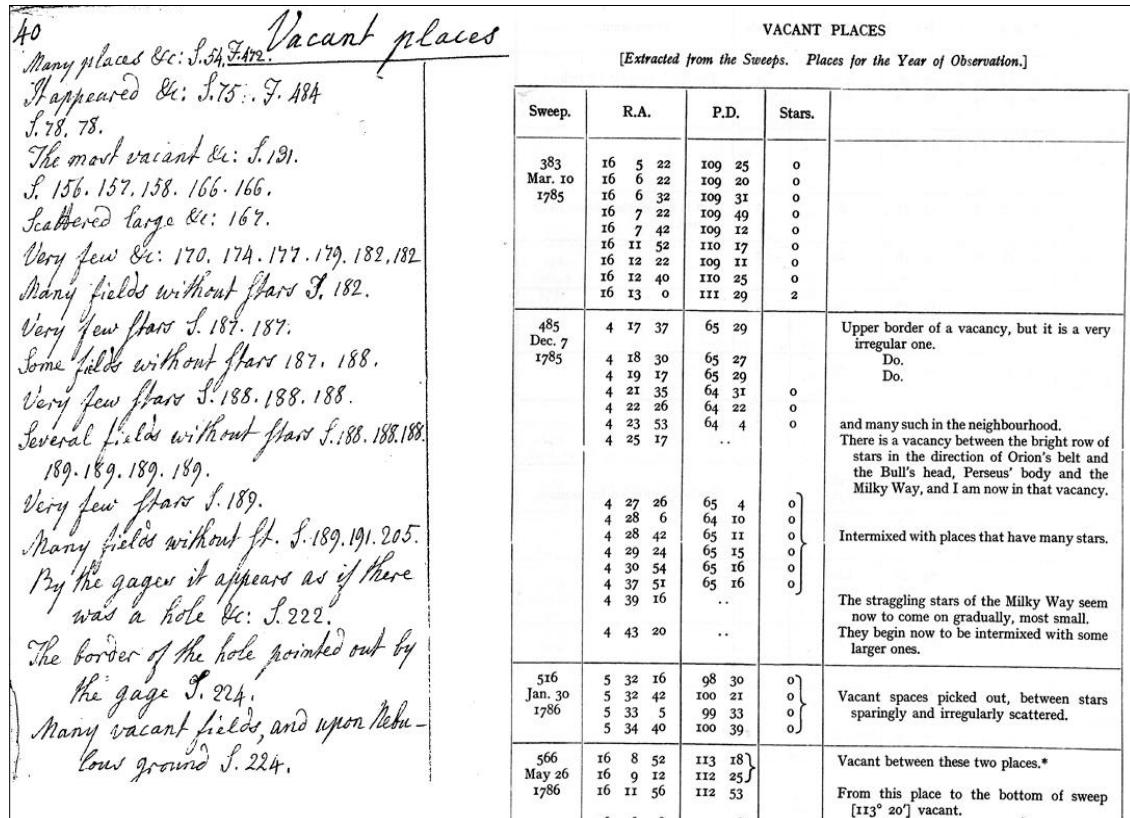 40
Vacant places
Many places &c: S. 54, F. 472.
It appeared &c: S. 75. F. 484
S. 78. 78.
The most vacant &c: S. 131.
S. 156. 157. 158. 166. 166.
Scattered large &c: 167.
Very few &c: 170. 174. 177. 179. 182, 182
Many fields without stars S. 182.
Very few stars S. 187. 187.
Some fields without stars 187. 188.
Very few stars S. 188. 188. 188.
Several fields without stars S. 188. 188. 188.
189. 189. 189. 189.
Very few stars S. 189.
Many fields without st. S. 189. 191. 205.
By the gages it appears as if there
was a hole &c: S. 222.
The border of the hole pointed out by
the gage S. 224.
Many vacant fields, and upon Nebu-
lous ground S. 224.
VACANT PLACES
[Extracted from the Sweeps. Places for the Year of Observation.]
Sweep. R.A. P.D. Stars.
383 16 5 22 109 25 0
Mar. 10 16 6 22 109 20 0
1785 16 6 32 109 31 0
16 7 22 109 49 0
16 7 42 109 12 0
16 11 52 110 17 0
16 12 22 109 11 0
16 12 40 110 25 0
16 13 0 111 29 2
485 4 17 37 65 29 Upper border of a vacancy, but it is a very
Dec. 7 irregular one.
1785 4 18 30 65 27 Do.
4 19 17 65 29 Do.
4 21 35 64 31 0
4 22 26 64 22 0
4 23 53 64 4 0 and many such in the neighbourhood.
4 25 17 .. There is a vacancy between the bright row of
stars in the direction of Orion's belt and
the Bull's head, Perseus' body and the
Milky Way, and I am now in that vacancy.
4 27 26 65 4 0
4 28 6 64 10 0
4 28 42 65 11 0 Intermixed with places that have many stars.
4 29 24 65 15 0
4 30 54 65 16 0
4 37 51 65 16 0
4 39 16 .. The straggling stars of the Milky Way seem
now to come on gradually, most small.
4 43 20 .. They begin now to be intermixed with some
larger ones.
516 5 32 16 98 30 0
Jan. 30 5 32 42 100 21 0 Vacant spaces picked out, between stars
1786 5 33 5 99 33 0 sparingly and irregularly scattered.
5 34 40 100 39 0
566 16 8 52 113 18 Vacant between these two places.*
May 26 16 9 12 112 25
1786 16 11 56 112 53 From this place to the bottom of sweep
[113° 20′] vacant.